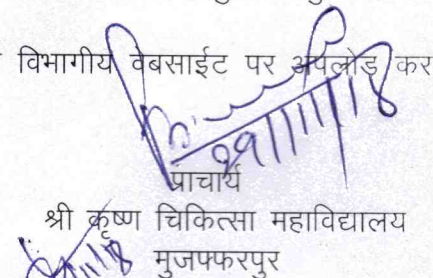 विभागीय वेबसाईट पर अपलोड कर
29/11/18
प्राचार्य
श्री कृष्ण चिकित्सा महाविद्यालय
मुजफ्फरपुर